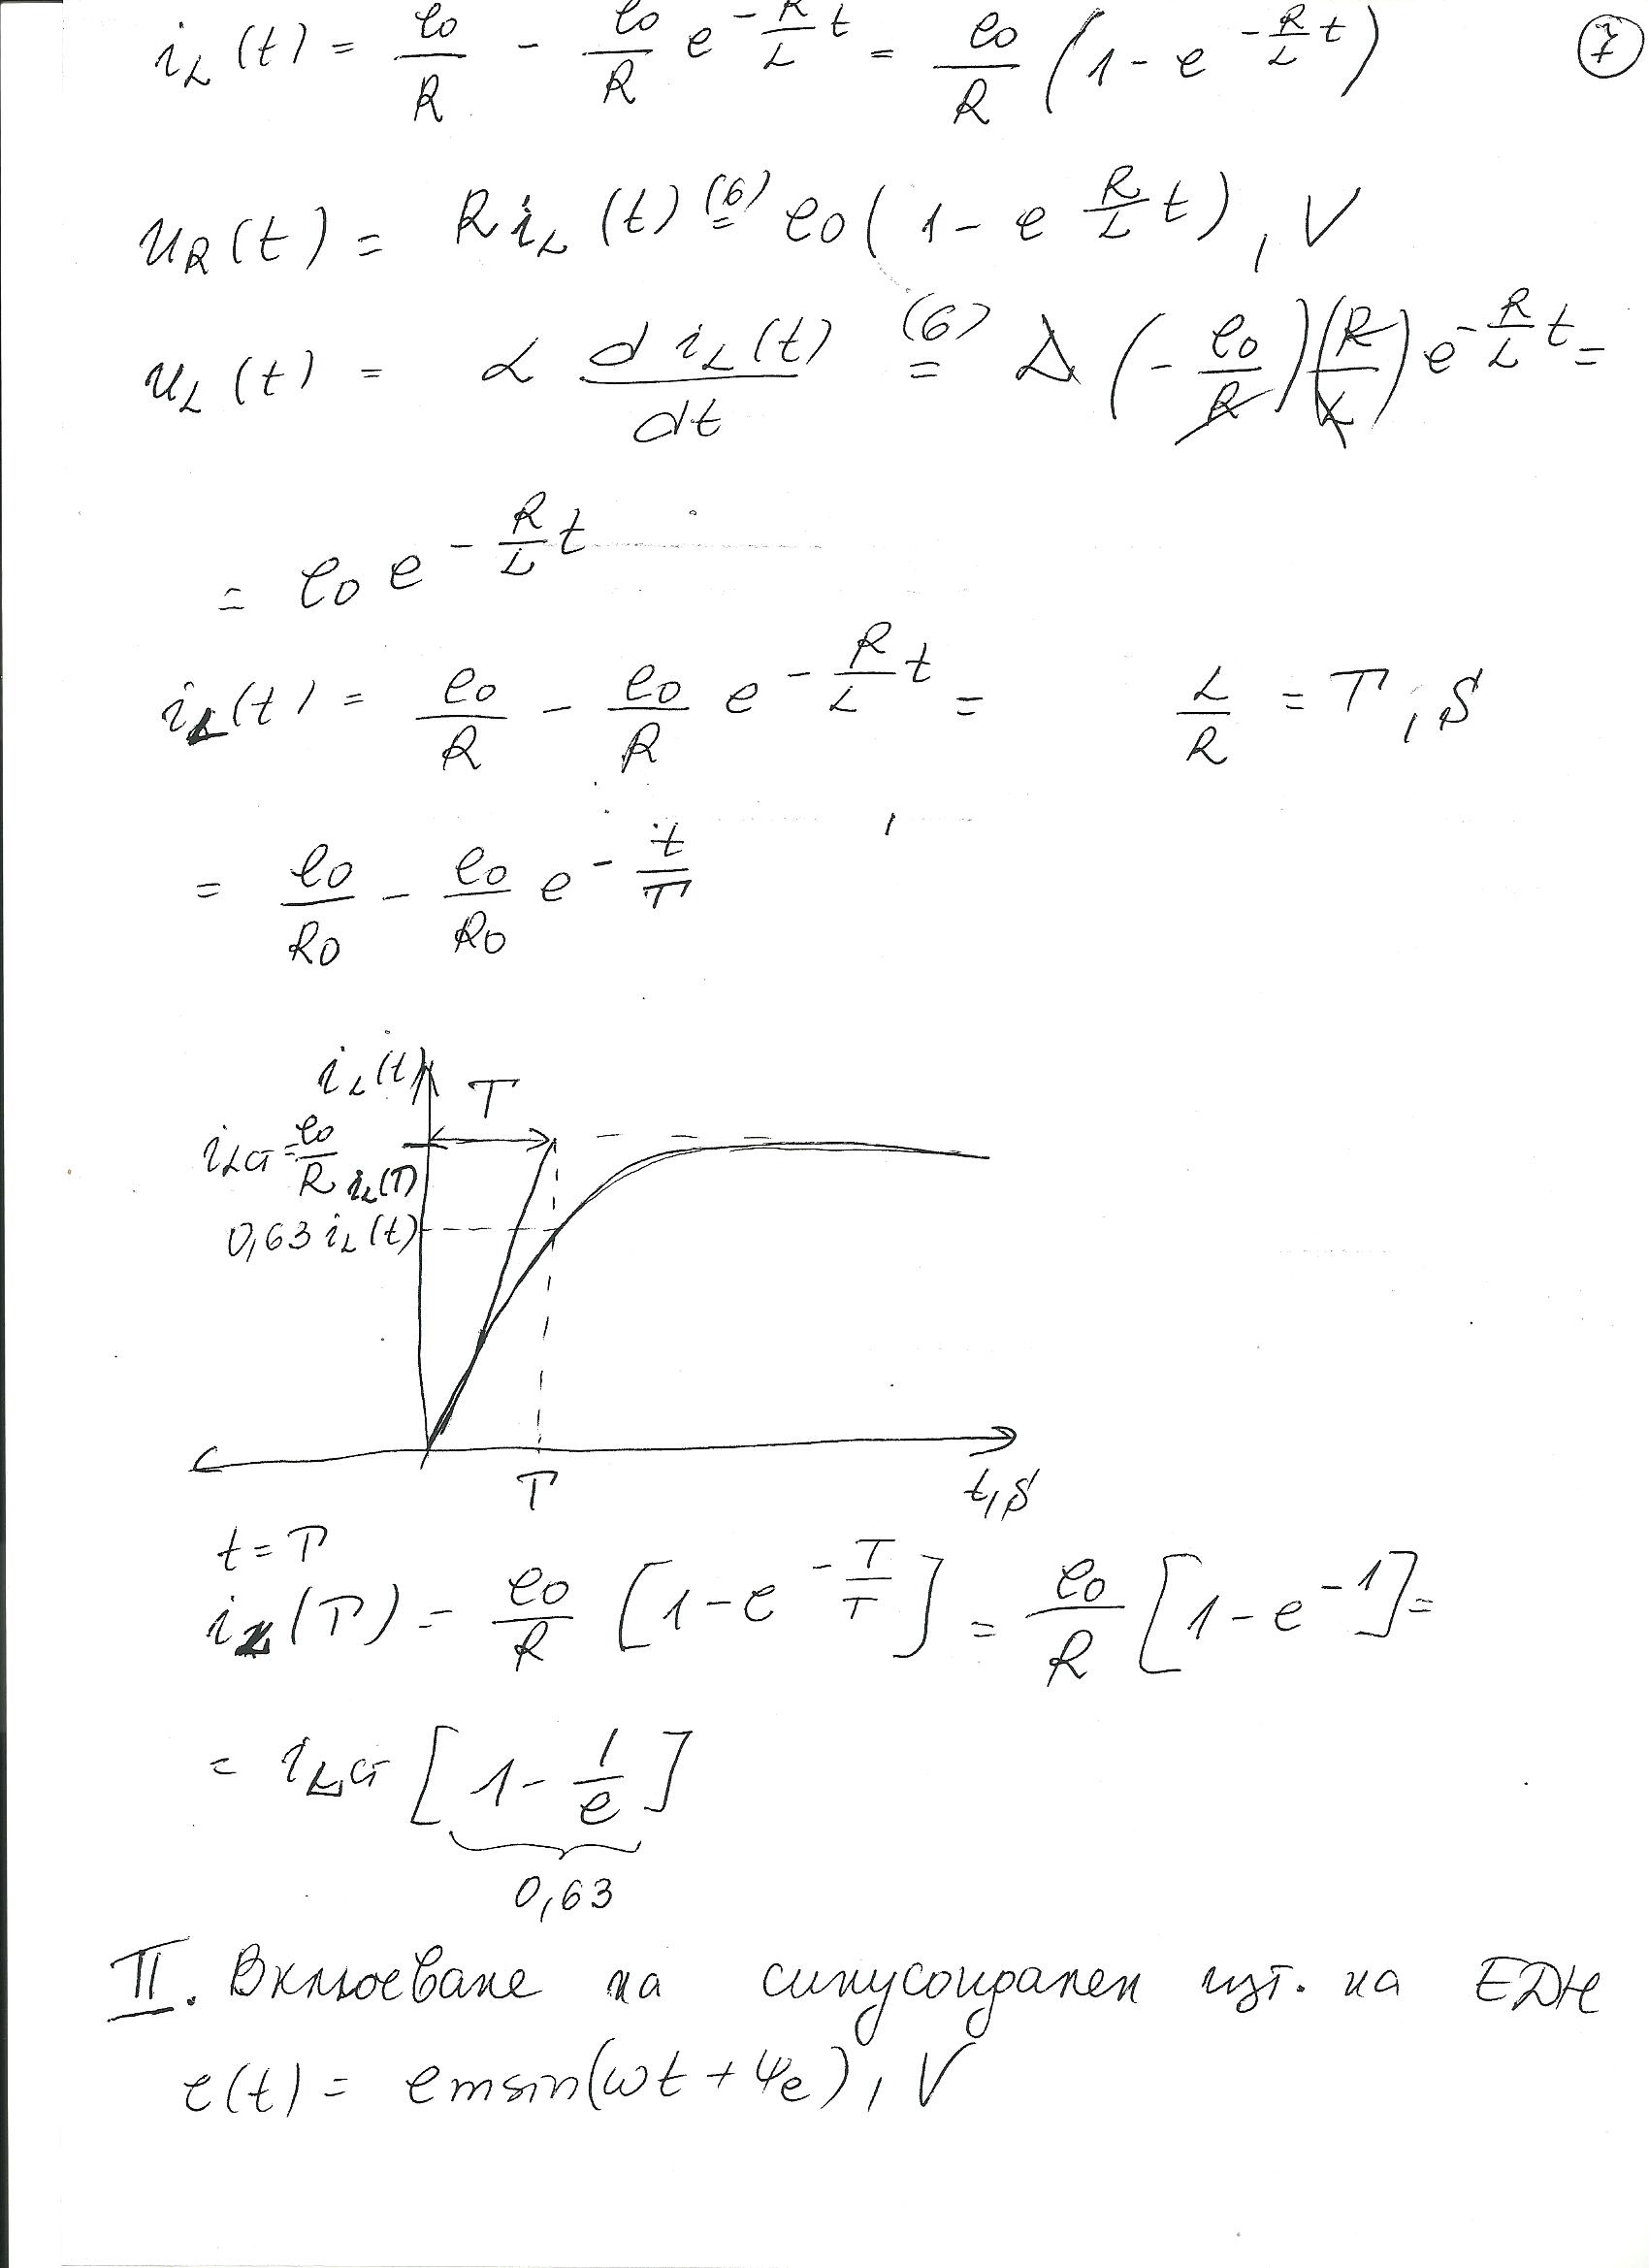 i_L(t) = e0/R - e0/R e^(-R/L t) = e0/R (1 - e^(-R/L t)) ⑦
u_R(t) = R i_L(t) (6)= e0(1 - e^(R/L t)), V
u_L(t) = L d i_L(t)/dt (6)= L(-e0/R)(R/L) e^(-R/L t) =
= e0 e^(-R/L t)
i_L(t) = e0/R - e0/R e^(-R/L t) = L/R = T, s
= e0/R0 - e0/R0 e^(-t/T)
i_L(t) T
i_Lст = e0/R
i_L(T)
0,63 i_L(t)
T t, s
t = T
i_L(T) = e0/R [1 - e^(-T/T)] = e0/R [1 - e^(-1)] =
= i_Lст [1 - 1/e]
0,63
II. Включване на синусоидален изт. на ЕДН
e(t) = em sin(ωt + ψe), V